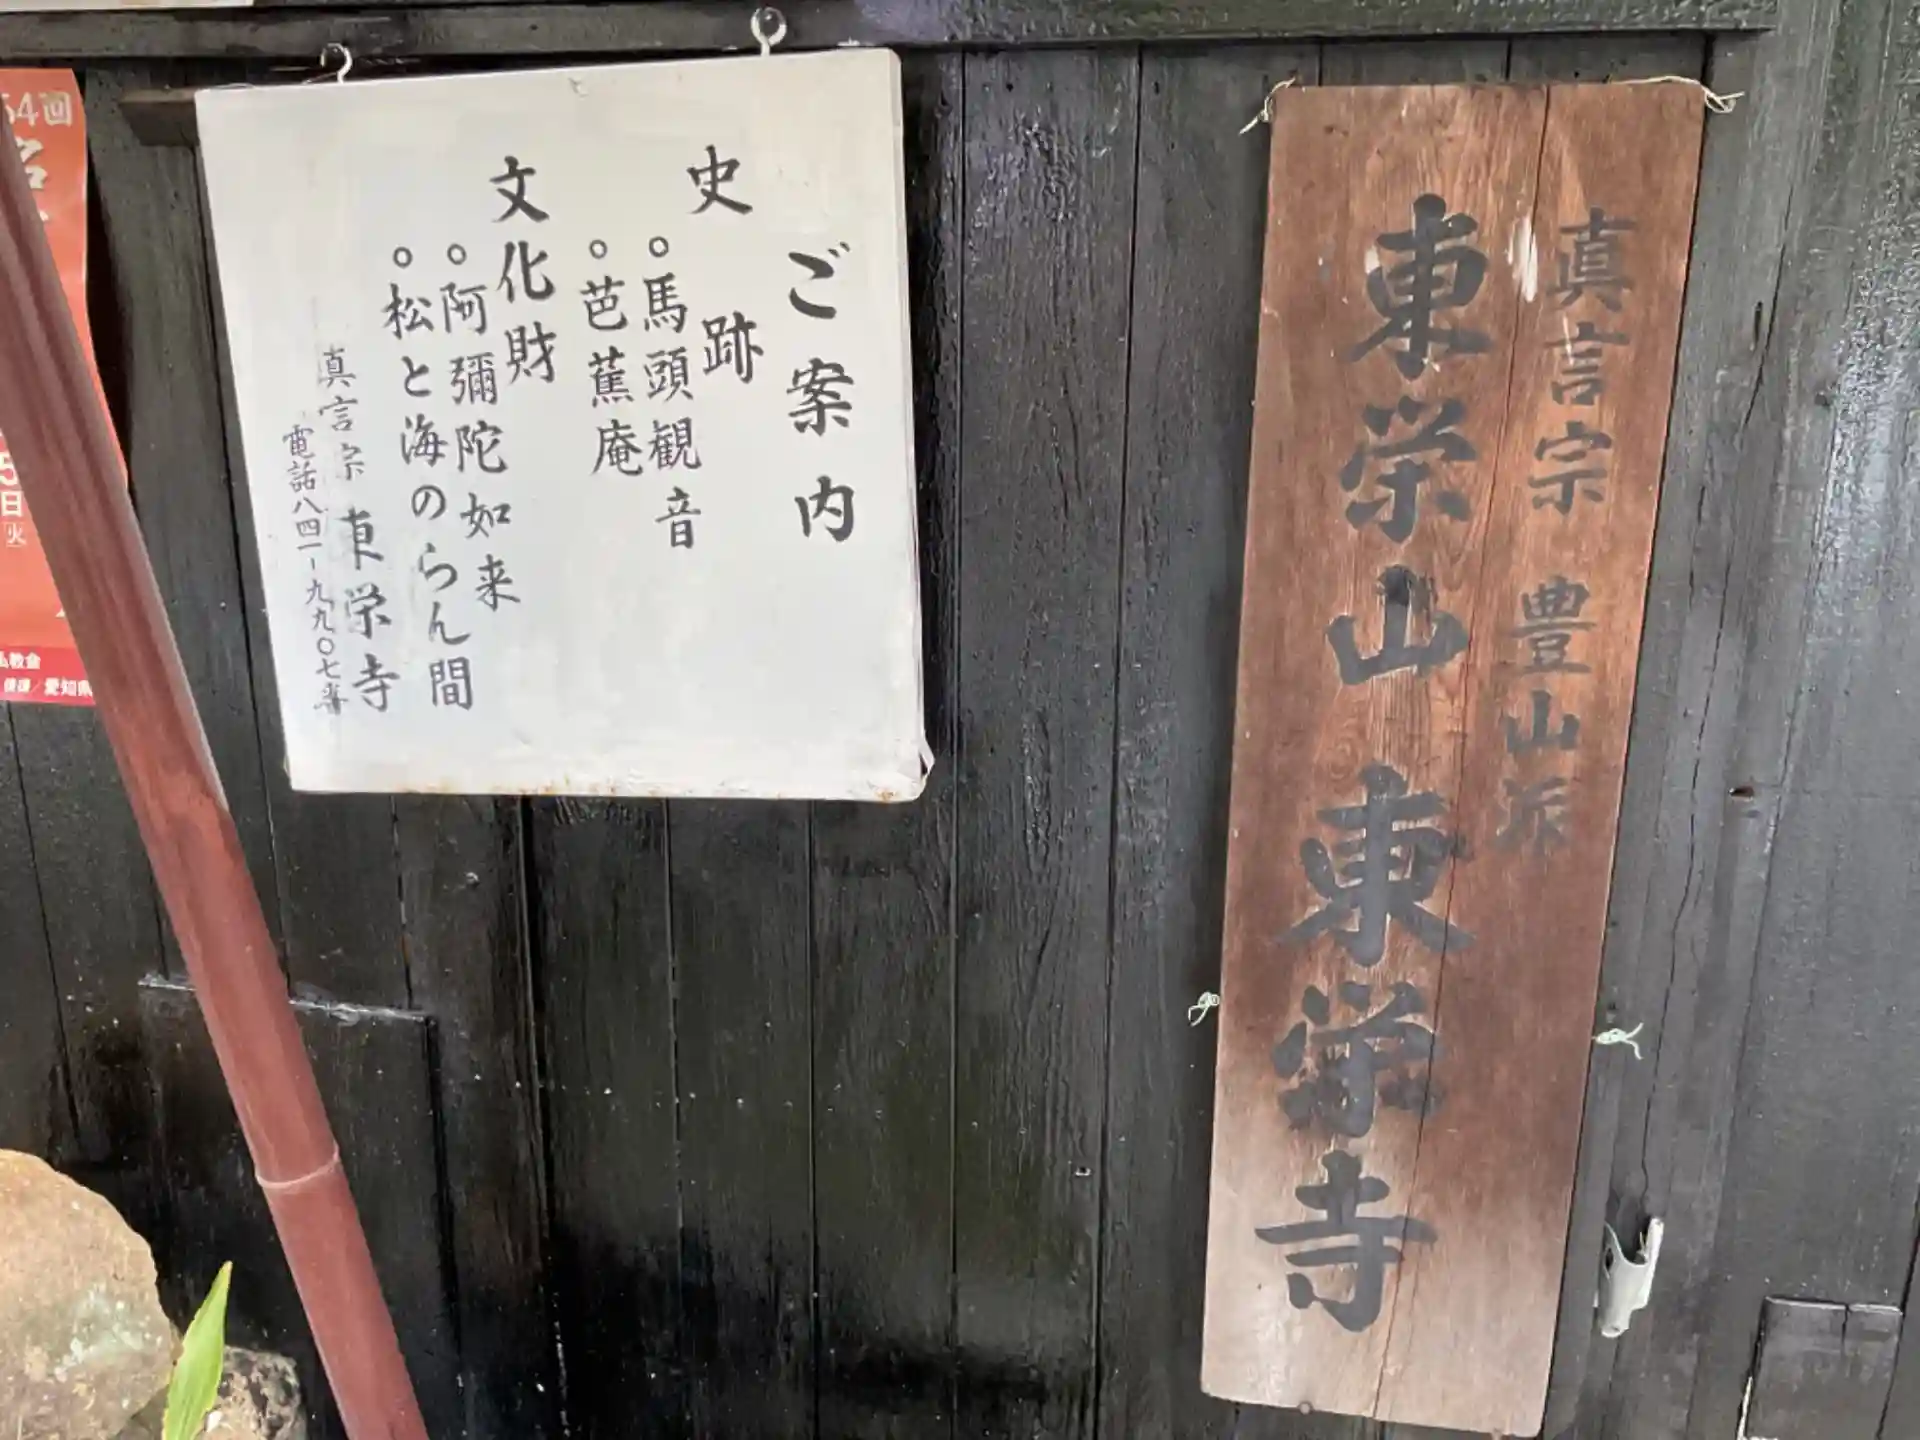 真言宗 豊山派
東栄山 東栄寺
ご案内
史跡
○馬頭観音
○芭蕉庵
文化財
○阿彌陀如来
○松と海のらん間
真言宗 東栄寺
電話八四一-九九〇七番
54回
5
日
火
愛知県